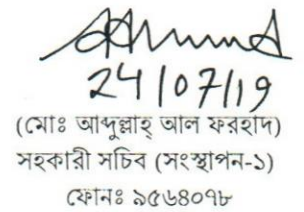 24/07/19
(মোঃ আব্দুল্লাহ্ আল ফরহাদ)
সহকারী সচিব (সংস্থাপন-১)
ফোনঃ ৯৫৬৪০৭৮